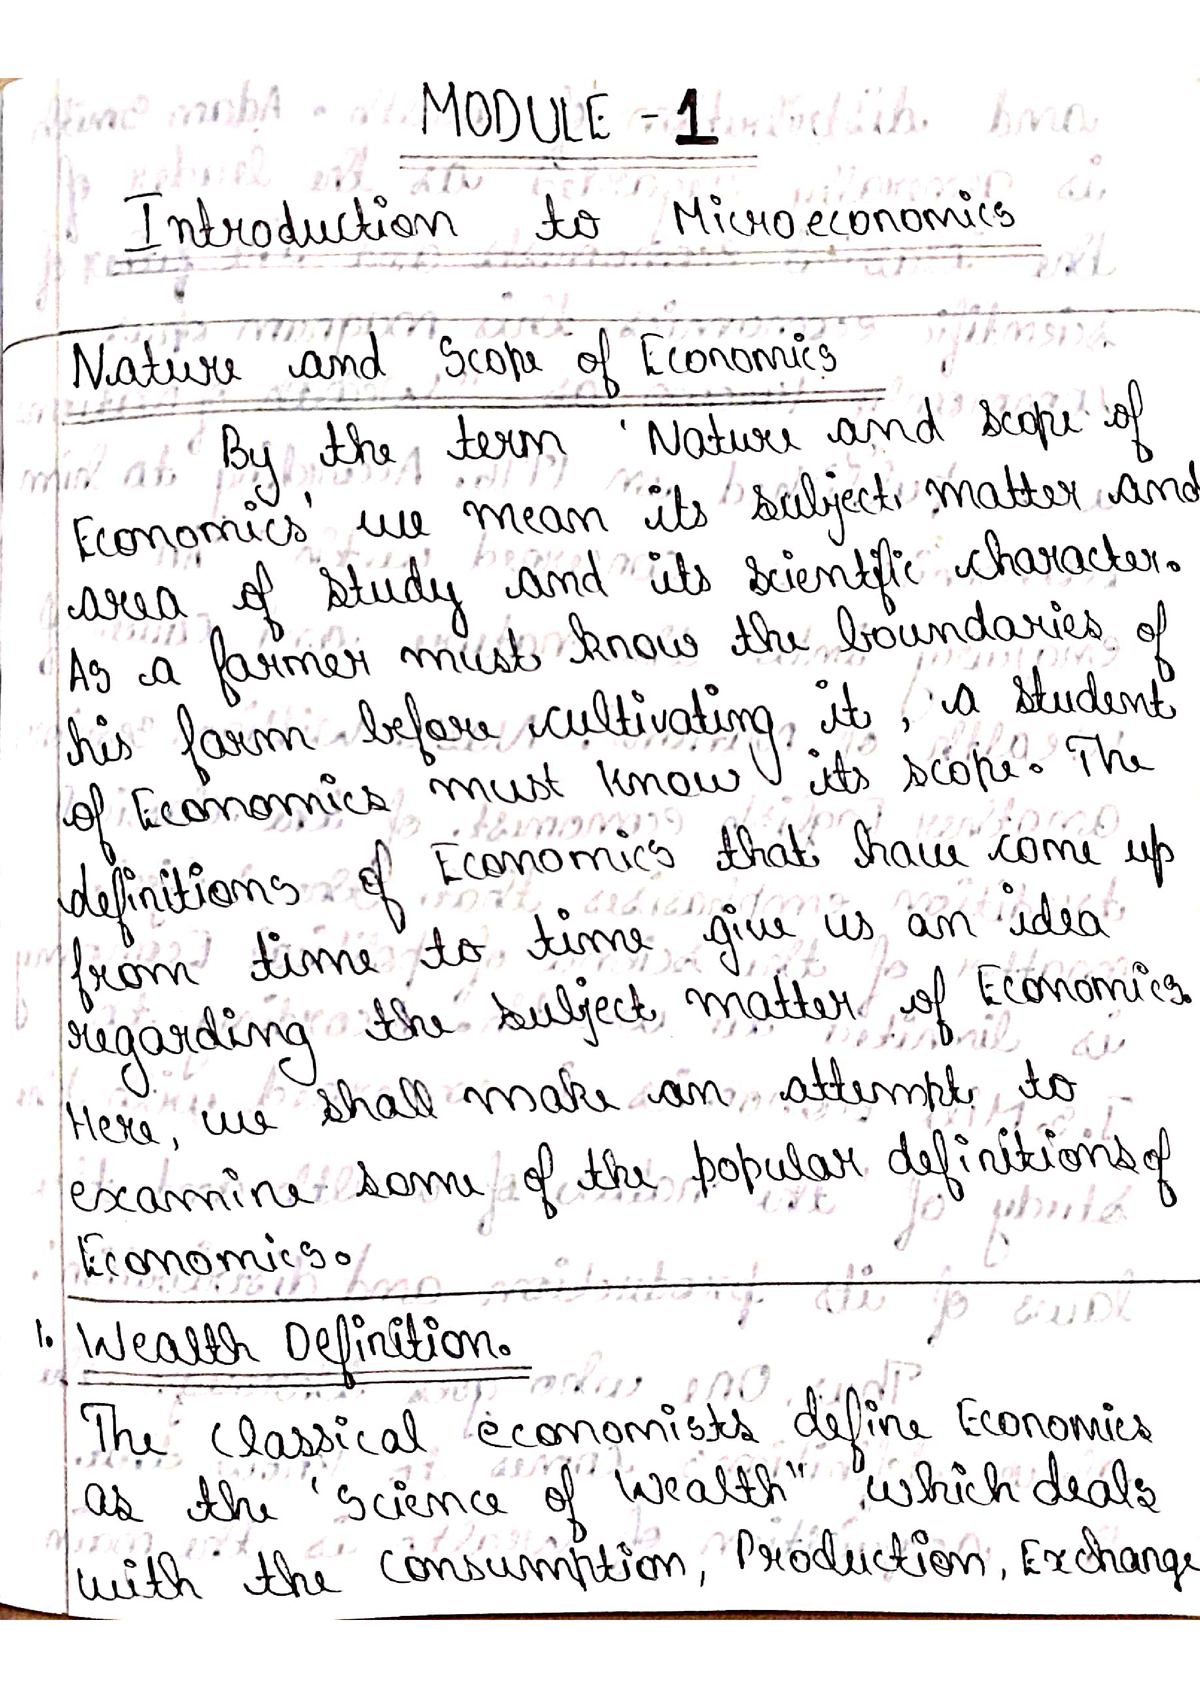 MODULE - 1
Introduction to Microeconomics
Nature and Scope of Economics
By the term 'Nature and scope of
Economics' we mean its subject matter and
area of study and its scientific character.
As a farmer must know the boundaries of
his farm before cultivating it, a student
of Economics must know its scope. The
definitions of Economics that have come up
from time to time give us an idea
regarding the subject matter of Economics.
Here, we shall make an attempt to
examine some of the popular definitions of
Economics.
1. Wealth Definition.
The classical economists define Economics
as the 'science of Wealth" which deals
with the consumption, Production, Exchange